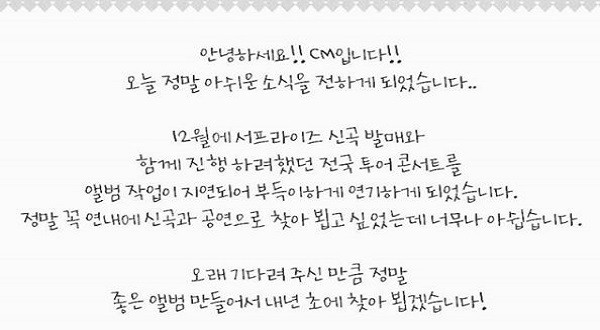 안녕하세요!! CM입니다!!
오늘 정말 아쉬운 소식을 전하게 되었습니다..
12월에 서프라이즈 신곡 발매와
함께 진행 하려했던 전국 투어 콘서트를
앨범 작업이 지연되어 부득이하게 연기하게 되었습니다.
정말 꼭 연내에 신곡과 공연으로 찾아 뵙고 싶었는데 너무나 아쉽습니다.
오래 기다려 주신 만큼 정말
좋은 앨범 만들어서 내년 초에 찾아 뵙겠습니다!